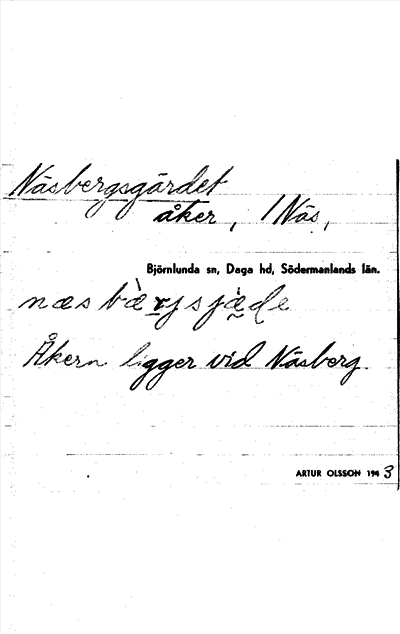 Näsbergsgärdet
åker, / Näs,
Björnlunda sn, Daga hd, Södermanlands län.
næsbæ̀rjsjæ̣de
Åkern ligger vid Näsberg.
ARTUR OLSSON 1943